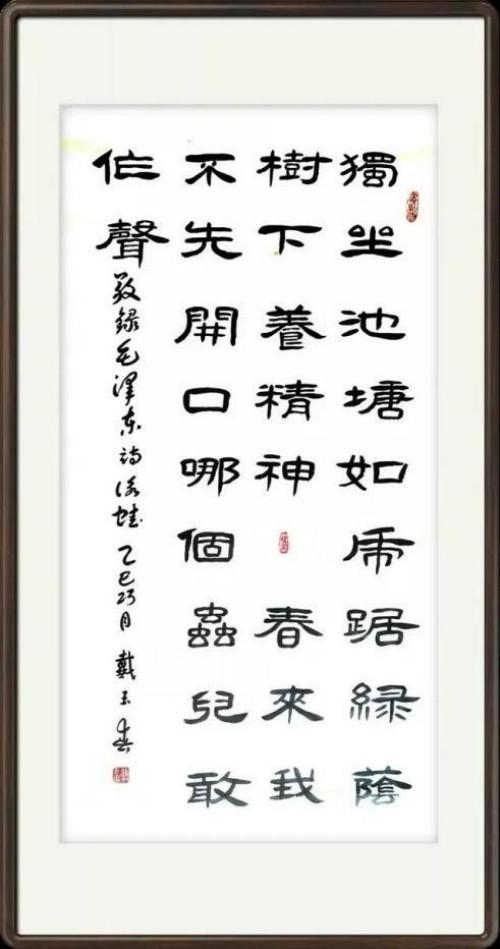 獨坐池塘如虎踞綠蔭
樹下養精神 春來我
不先開口哪個蟲兒敢
作聲 敬録毛澤东诗咏蛙 乙巳巧月 戴玉